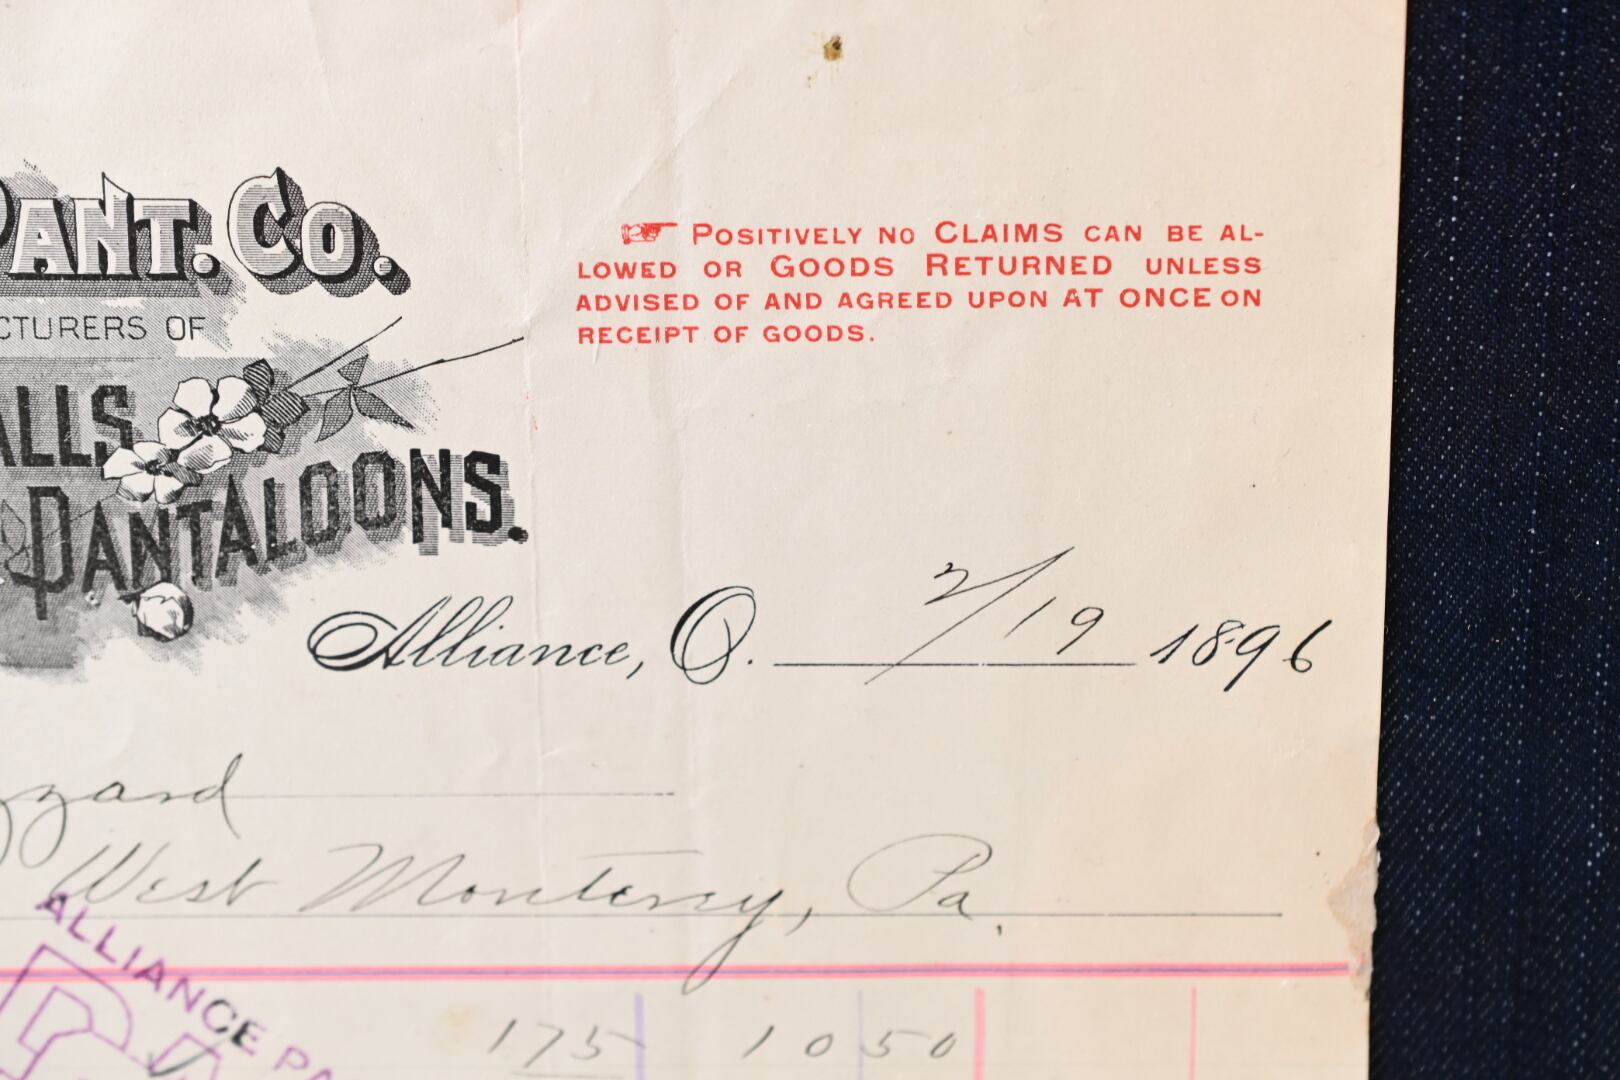 PANT. CO.
☞ POSITIVELY NO CLAIMS CAN BE AL-
LOWED OR GOODS RETURNED UNLESS
ADVISED OF AND AGREED UPON AT ONCE ON
RECEIPT OF GOODS.
CTURERS OF
ALLS
PANTALOONS.
Alliance, O. 2/19 1896
zzard
West Monterey, Pa.
ALLIANCE PA
175 10 50